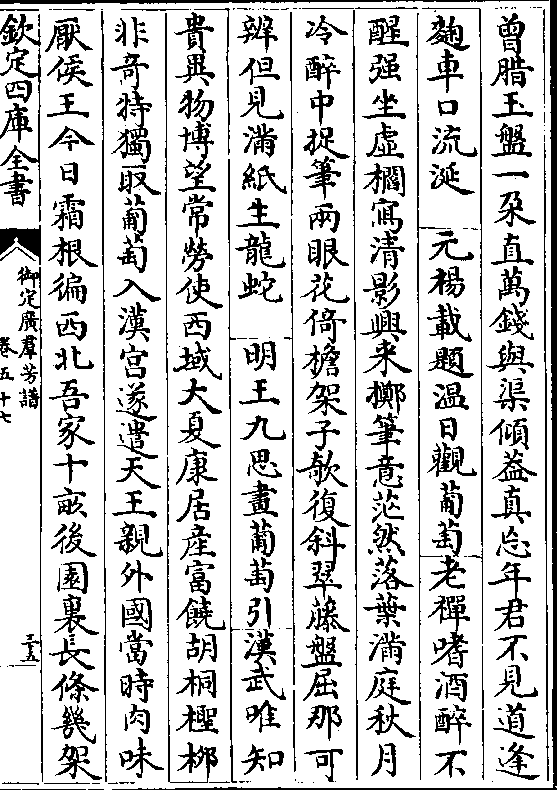 曾腊玉盤一朶直萬錢與渠傾葢真忘年君不見道逢
麴車口流涎 元楊載題温日觀葡萄老禪嗜酒醉不
醒强坐虛櫩寫清影興来擲筆意茫然落葉滿庭秋月
冷醉中捉筆兩眼花倚檐架子欹復斜翠藤盤屈那可
辨但見滿紙生龍蛇 明王九思畫葡萄引漢武唯知
貴異物博望常勞使西域大夏康居産富饒胡桐檉栁
非奇特獨取葡萄入漢宫遂遣天王親外國當時肉味
厭侯王今日霜根徧西北吾家十畝後園裏長條幾架
欽定四庫全書
御定廣羣芳譜
卷五十七
三五